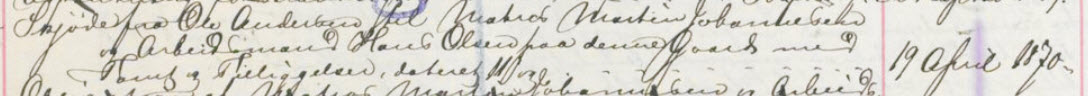 Skjöde fra Ole Andersen til Matros Martin Johannesen
og Arbeidsmand Hans Olsen paa denne Gaard med
Tomt og Tilliggelser, dateret 19 April 1870.
Matros Martin Johannesen og Arbeids